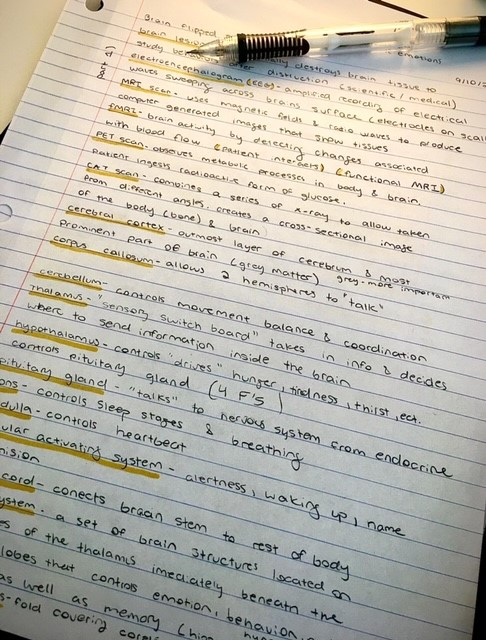 Brain flipped
brain lesion
destroys brain tissue to
emotions
study after distruction (scientific / medical)
9/10/
electroencephalogram (EEG) - amplified recording of electrical
waves sweeping across brains surface (electrodes on scalp
MRI scan - uses magnetic fields & radio waves to produce
computer generated images that show tissues
fMRI - brain activity by detecting changes associated
with blood flow (patient interacts) (functional MRI)
PET scan - observes metabolic processes in body & brain.
Patient ingests radioactive form of glucose.
CAT scan - combines a series of x-ray to allow taken
from different angles. creates a cross-sectional image
of the body (bone) & brain
cerebral cortex - outmost layer of cerebrum & most
prominent part of brain (grey matter) grey - more important
corpus callosum - allows 2 hemispheres to "talk"
cerebellum - controls movement balance & coordination
Thalamus - "sensory switch board" takes in info & decides
where to send information inside the brain
hypothalamus - controls "drives" hunger, tiredness, thirst, ect.
controls pituitary gland (4 F's)
pituitary gland - "talks" to nervous system from endocrine
ons - controls sleep stages & breathing
dulla - controls heartbeat
ular activating system - alertness, waking up, name
cord - conects braan stem to rest of body
ystem - a set of brain structures located on
es of the thalamus imediately beneath the
lobes that controls emotion, behavior
as well as memory
s - fold covering